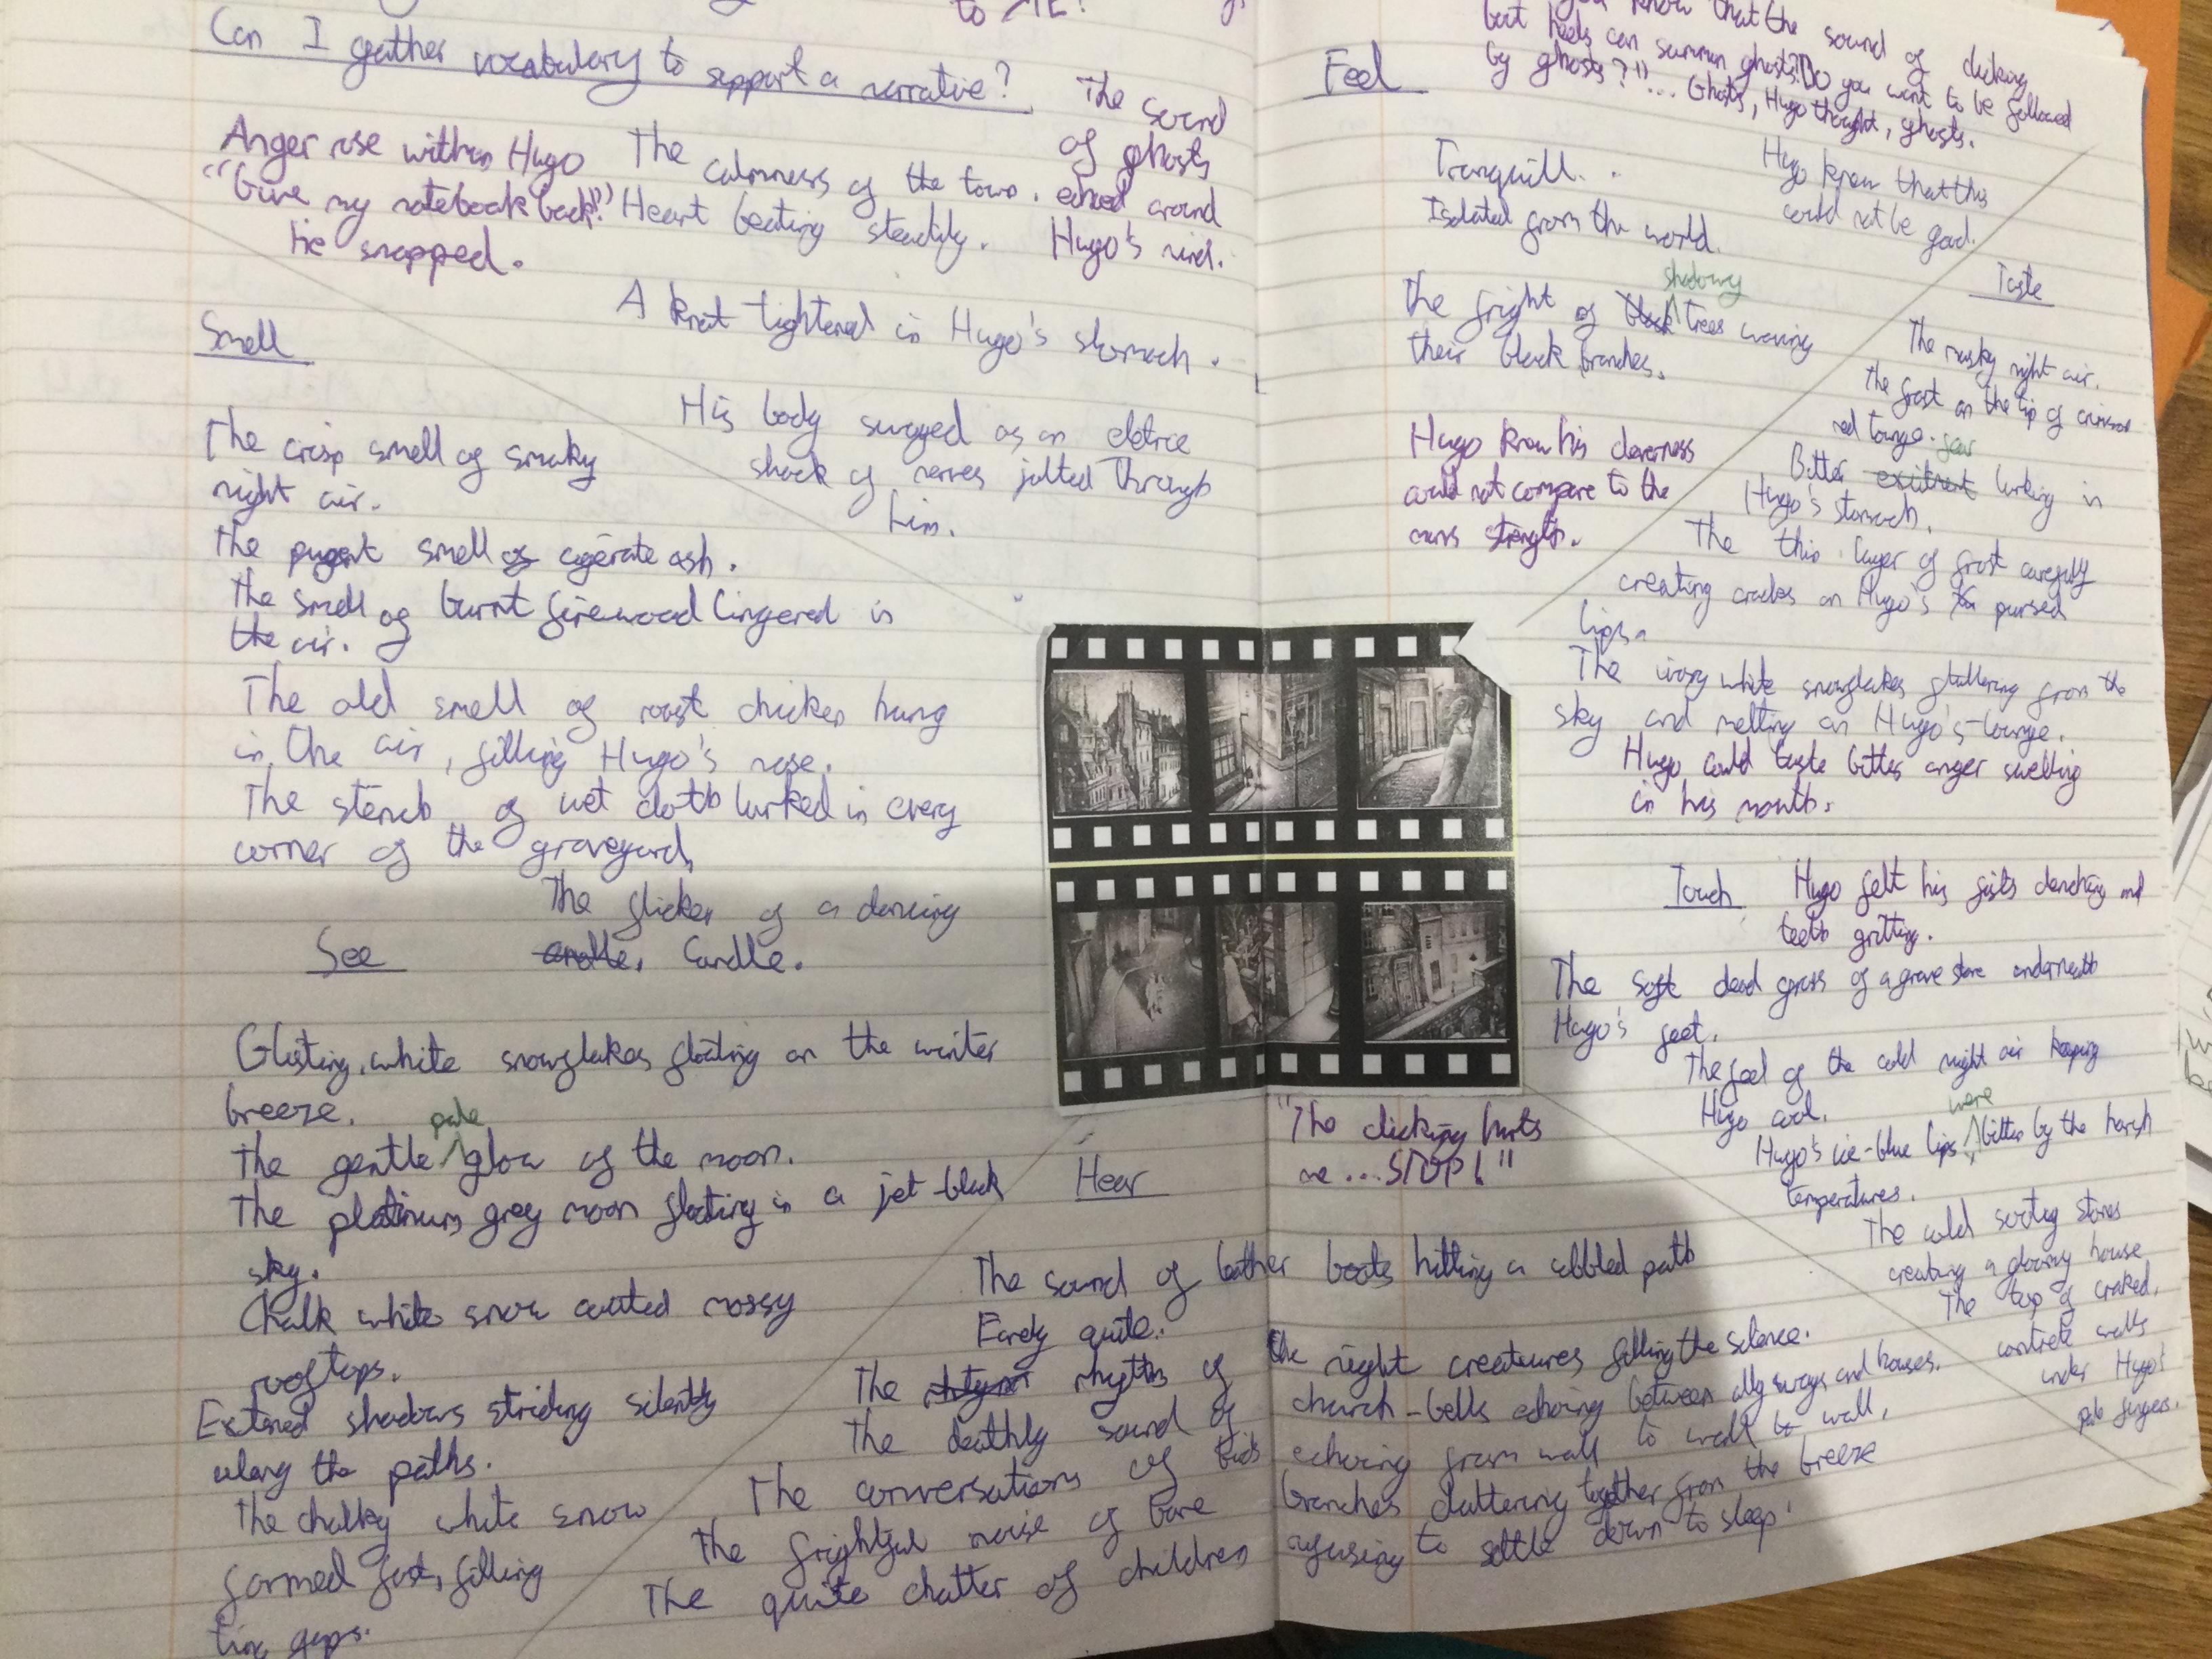 to ME!
Can I gather vocabulary to support a narrative?
Anger rose within Hugo
"Give my notebook back!"
he snapped.
The calmness of the town.
Heart beating steadily.
The sound
of ghosts
echoed around
Hugo's mind.
A knot tightened in Hugo's stomach.
His body surged as an eletric
shock of nerves jolted through
him.
Smell
The crisp smell of smoky
night air.
The pugent smell of cigerate ash.
The smell of burnt firewood lingered in
the air.
The old smell of roast chicken hung
in the air, filling Hugo's nose.
The stench of wet cloth lurked in every
corner of the graveyard.
See
The flicker of a dancing
candle. Candle.
Glisting, white snowflakes floating on the winter
breeze.
pale
The gentle glow of the moon.
The platinum grey moon floating in a jet-black
sky.
Chalk white snow coated mossy
rooftops.
Extened shadows striding silently
along the paths.
The chalky white snow
formed fast, filling
tiny gaps.
Hear
"The clicking hurts
me...STOP!"
The sound of leather boots hitting a cobbled path
Eerely quite.
The rhythm of the night creatures filling the silence.
The deathly sound of church-bells echoing between ally ways and houses.
The conversations of birds echoing from wall to wall to wall.
The frightful noise of bare branches cluttering together from the breeze
The quite chatter of children refusing to settle down to sleep!
Feel
you know that the sound of clicking
boot heels can summon ghosts? Do you want to be followed
by ghosts?"... Ghosts, Hugo thought, ghosts.
Tranquill.
Isolated from the world.
Hugo knew that this
could not be good.
shadowy
The fright of black trees waving
their black branches.
Hugo knew his cleverness
could not compare to the
mans strength.
Taste
The musky night air.
The frost on the tip of crimson
red tounge.
fear
Bitter excitment lurking in
Hugo's stomach.
The thin layer of frost carefully
creating cracks on Hugo's pursed
lips.
The ivory white snowflakes fluttering from the
sky and melting on Hugo's tounge.
Hugo could taste bitter anger swelling
in his mouth.
Touch
Hugo felt his fists clenching and
teeth gritting.
The soft dead grass of a grave stone underneath
Hugo's feet.
The feel of the cold night air keeping
Hugo cool.
were
Hugo's ice-blue lips bitten by the harsh
temperatures.
The cold stones
creating a gloomy house
The top of craked,
concrete walls
under Hugo's
pale fingers.